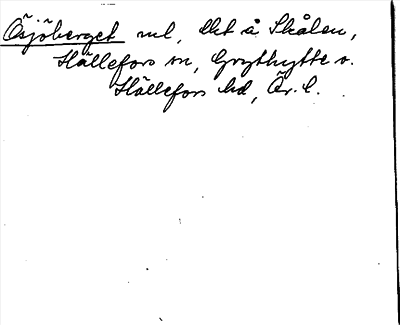 Ösjöberget vid, del å Skålen,
Hällefors sn, Grythytte o.
Hällefors hd, Ör. l.